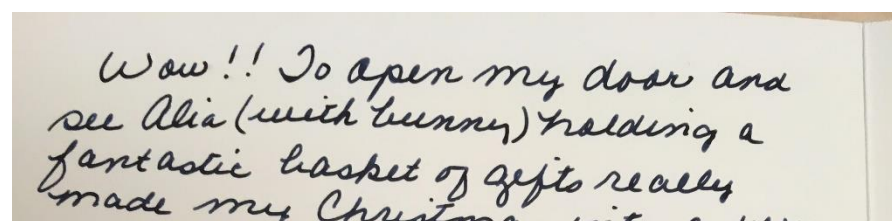 Wow!! To open my door and
see Alia (with bunny) holding a
fantastic basket of gifts really
made my Christmas